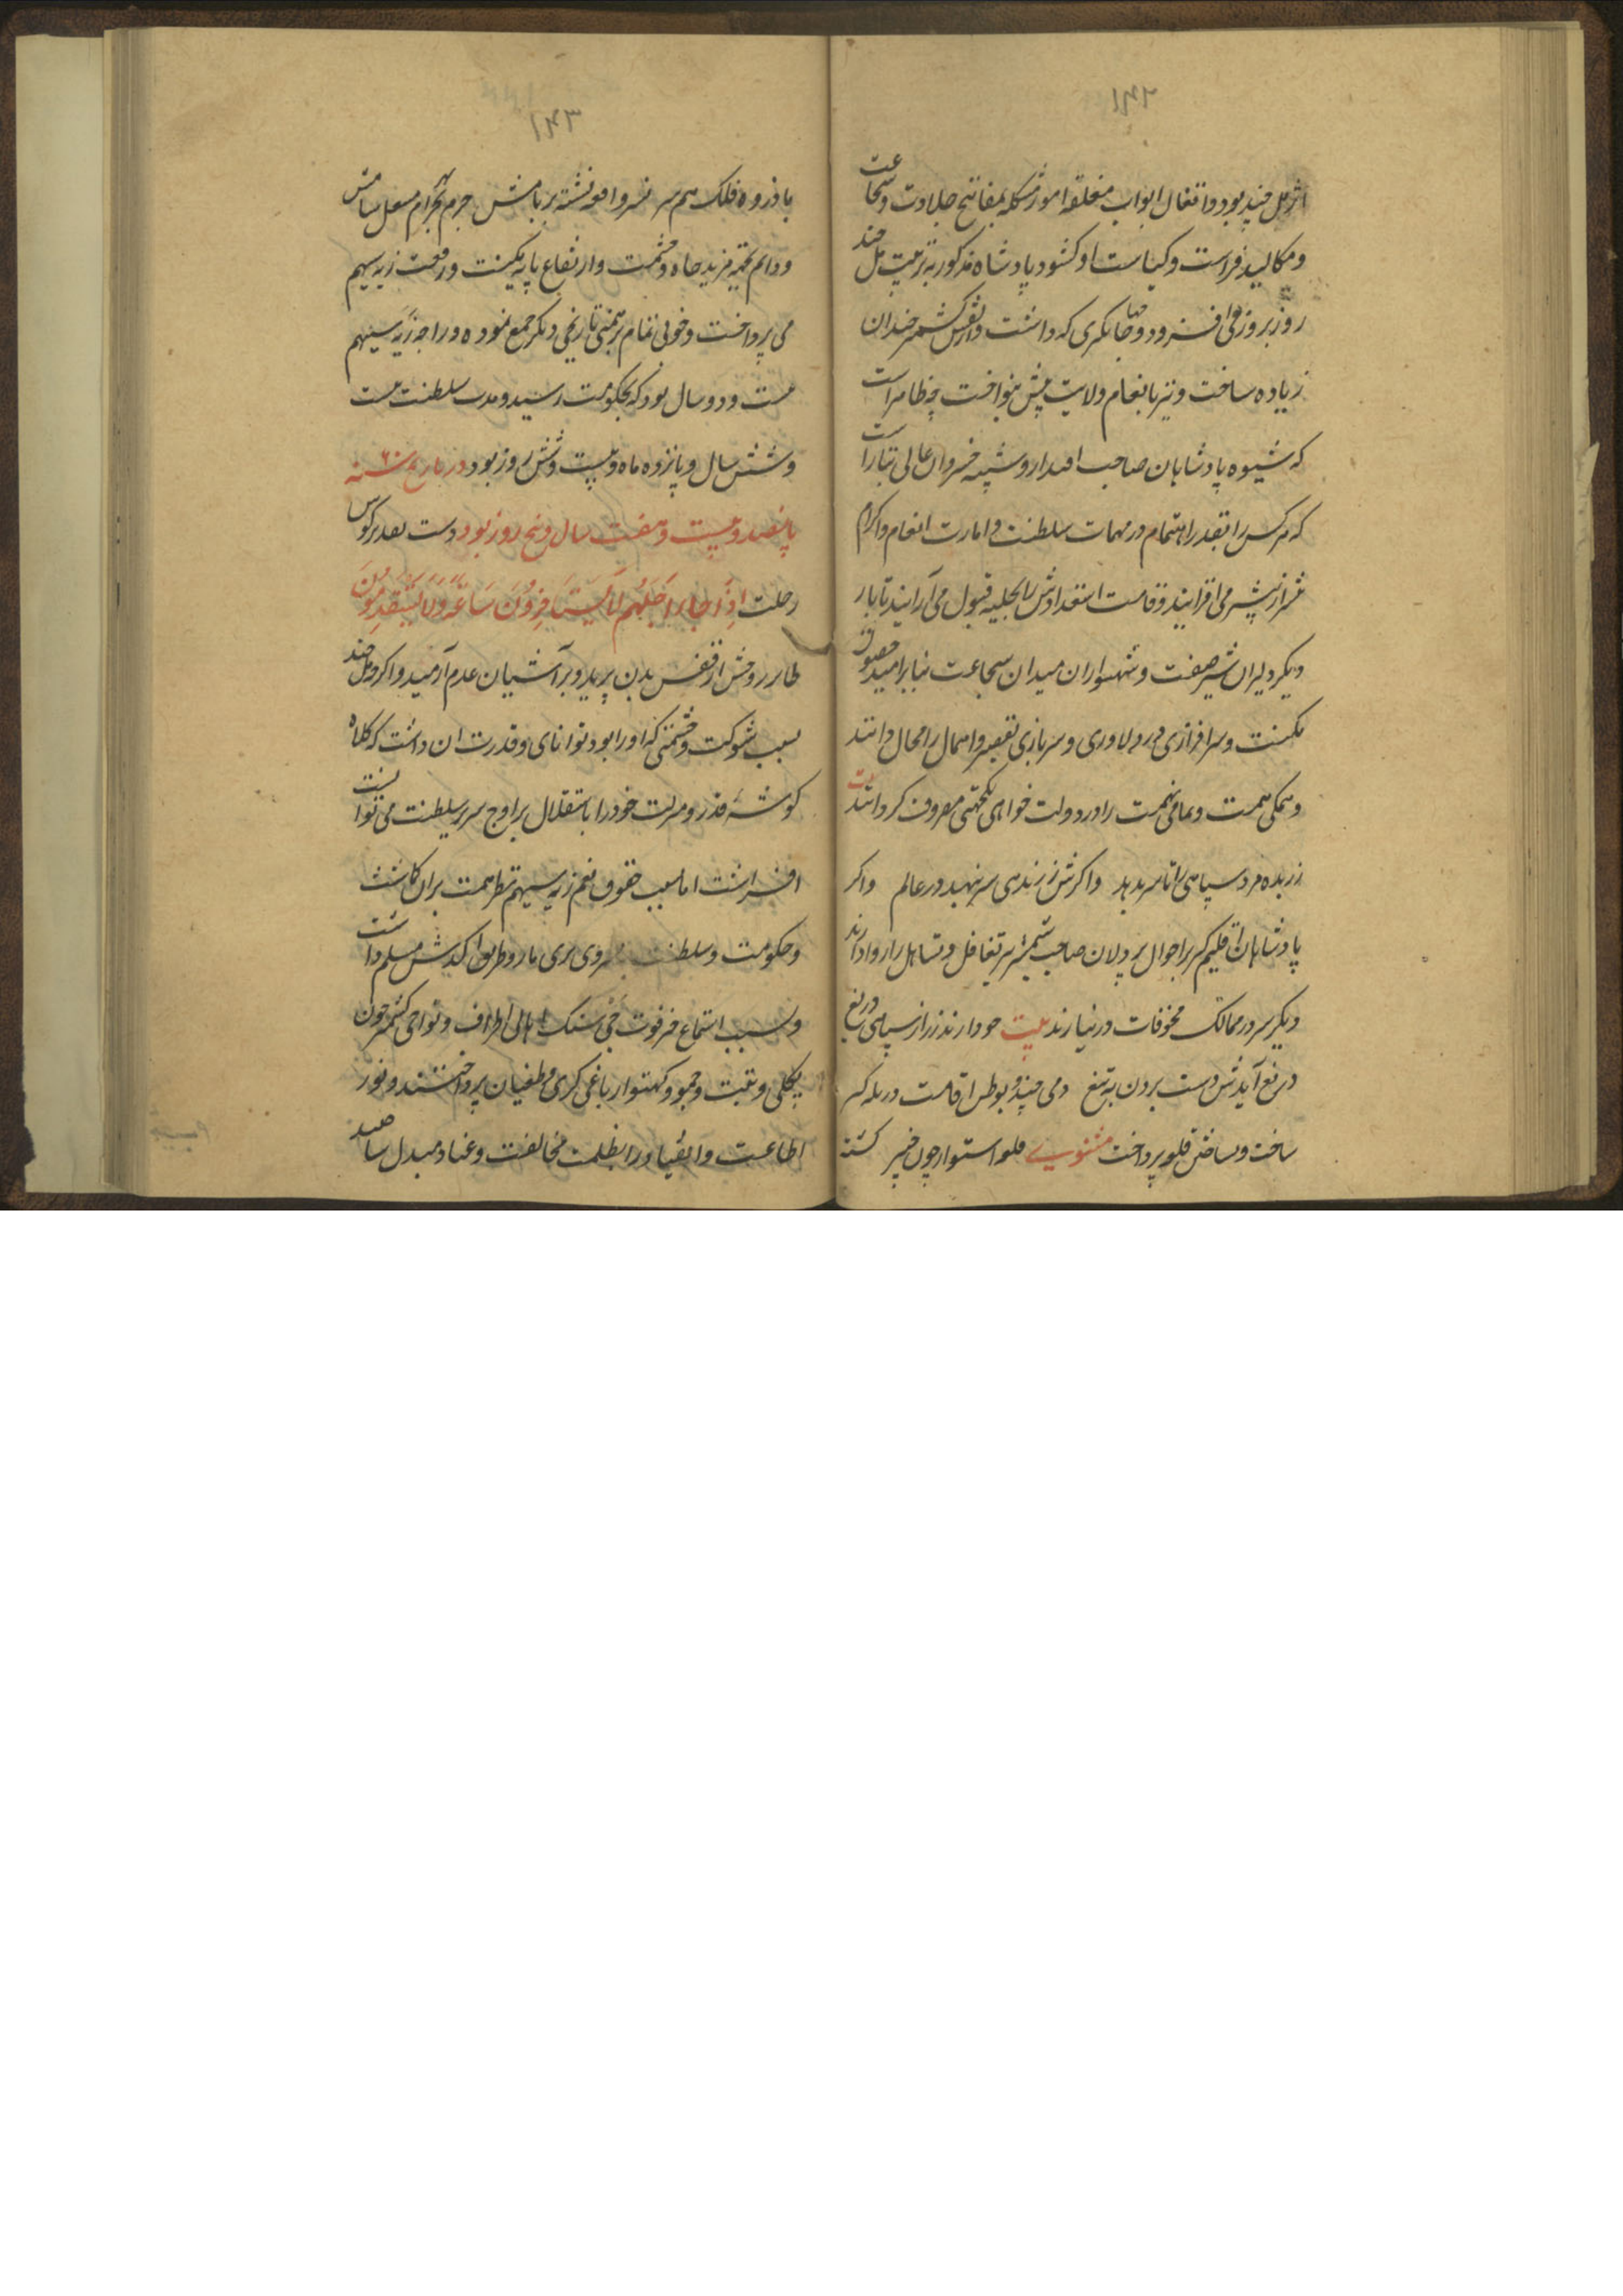 ۱۴۲
اثر مل چند بود و انفعال ابواب مغلقه امور مشکله بمفاتیح جلادت و شجاعت
و مکالید فراست و کیاست او کشود پادشاه مذکور به تربیت مل چند
روز بروز می افزود و جایگری که داشت کشمیر چندان
زیاده ساخت و نیز بانعام ولایت پیش بنواخت چه ظاهر است
که شیوه پادشاهان صاحب اقتدار و شیمه خسروان عالی تبار است
که هرکس را بقدر اهتمام در مهمات سلطنت و امارت انعام و اکرام
می افزایند و قامت استعدادش را بحلیه قبول می آرایند تا بار
دیگر دلیران شیر صفت و شهسواران میدان شجاعت بنا بر امید حصول
مکنت و سرافرازی در دلاوری و سربازی تقصیر و اهمال را محال دانند
و همکی همت و تمامی نهمت را در دولت خواهی یکجهتی مصروف کردانند بیت
زر بده مرد سپاهی را تا سر بدهد و اکرش زر ندهی سر بنهد در عالم و اکر
پادشاهان اقلیم کیر بر احوال پردلان صاحب شمشیر تغافل و تساهل را روا دارند
دیکر سر در ممالک مخوفات در نیارند بیت چو دارند زر از سپاهی دریغ
دریغ آیدش دست بردن به تیغ و مل چند بوطن اقامت در
ساخت و بساختن قلعه پرداخت مثنوی قلعه استوار چون خیبر کشته
۱۴۳
با ذروه فلک همسر نسر واقع نشسته بر بامش جرم بهرام مشعل شامش
و دایم بمزید جاه و حشمت و ارتفاع پایه مکنت و رفعت زیه سیهم
می پرداخت و خوبی تمام برهمنی تاریخی دیکر جمع نموده و راجه زیه سیهم
بیست و دو سال بود که بحکومت رسید و مدت سلطنت بیست
و شش سال و یازده ماه و بیست و شش روز بود در تاریخ سنه ۶۰
پانصد و بیست و هفت سال و پنج روز بود دست تقدیر کوس
رحلت اِذَا جَاءَ اَجَلُهُم لَا یَستَاخِرُونَ سَاعَةً وَلَا یَستَقدِمُونَ
طایر روحش از قفس بدن پرید و بر آشیان عدم آرمید و اکر مل چند
بسبب شوکت و حشمتی که او را بود توانای و قدرت ان داشت که کلاه
کوشه قدر و منزلت خود را باستقلال بر اوج سریر سلطنت می توانست
افراشت اما بسبب حقوق نعم زیه سیهم نظر همت بران کاشت
و حکومت و سلطنت مسلم داشت
و بسبب استماع خبر فوت جی سنک اهالی اطراف و نواحی کشمیر چون
پکلی و تبت و جمو و کهتوار باغی کری و طغیان پرداختند و نور
اطاعت و انقیاد را بظلمت مخالفت و عناد مبدل ساختند